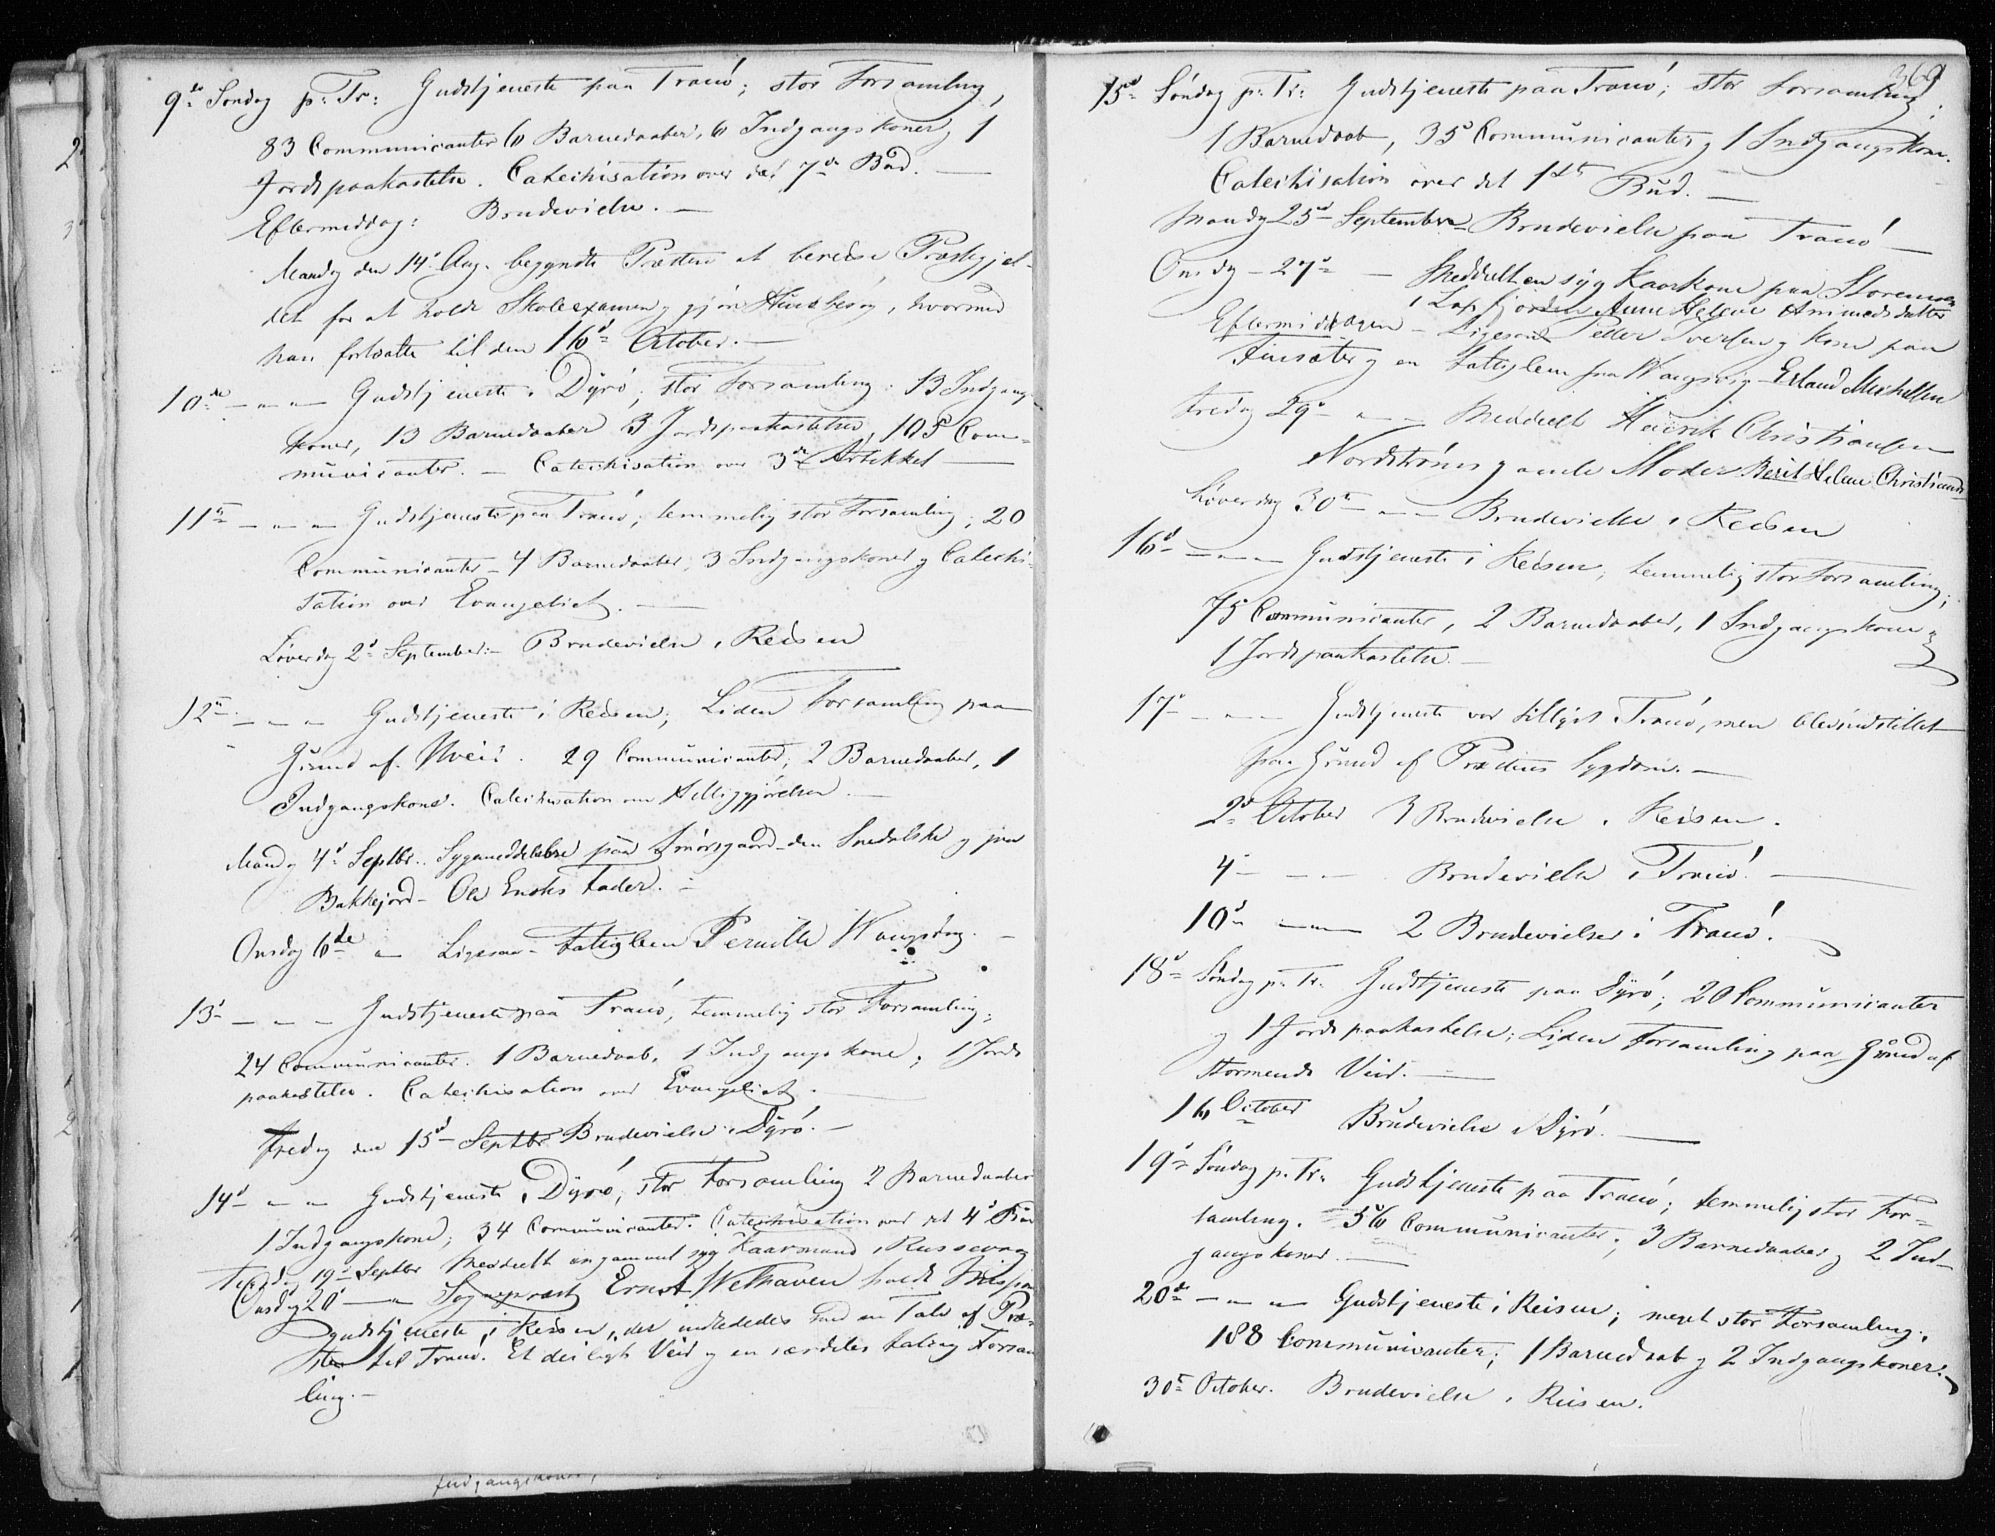 9de Søndag p: Tr: Gudstjeneste paa Tranø; stor Forsamling,
83 Communicanter 6 Barnedaaber, 6 Indgangskoner og 1
Jordspaakastelse. Catechisation over det 7de Bud. —
Eftermiddag: Brudevielse. —
Mandag den 14d Aug. begyndte Præsten at bereise Præstegjel-
det for at holde Skoleexamen og gjøre Huusbesøg, hvormed
han fortsatte til den 16d October. —
10de — — — Gudstjeneste i Dyrø, stor Forsamling: 13 Indgangs-
koner, 13 Barnedaaber 3 Jordspaakastelser, 105 Com-
municanter. — Catechisation over 3de Artikkel —
11te — — — Gudstjeneste paa Tranø, temmelig stor Forsamling; 20
Communicanter — 4 Barnedaaber, 3 Indgangskoner og Catechi-
sation over Evangeliet. —
Løverdag 2d September. — Brudevielse i Reisen
12te — — — Gudstjeneste i Reisen; Liden Forsamling paa
Grund af Uveir. 29 Communicanter, 2 Barnedaaber, 1
Indgangskone. Catechisation om Helliggjørelsen. —
Mandag 4d Septbr. Sygemeddelelse paa den og paa
Bakkejord — Ole Enoks Fader. —
Onsdag 6de — Ligesaa — Fatiglem Pernille Wangsdag. —
13d — — — Gudstjeneste paa Tranø, temmelig stor Forsamling;
24 Communicanter. 1 Barnedaab, 1 Indgangskone, 1 Jords
paakastelse. Catechisation over Evangeliet. —
Fredag den 15d Septbr Brudevielse i Dyrø. —
14d — — Gudstjeneste i Dyrø, stor Forsamling 2 Barnedaaber
1 Indgangskone; 34 Communicanter. Catechisation over det 4d Bud
Tirsdag 19d Septbr Meddeelt en gammel syg Kaarmand i Russevaag
Onsdag 20d — Sogneprest Ernst Welhaven holdt Missions
gudstjeneste i Reisen, der indlededes med en Tale af Præ-
sten til Tranø. Et deiligt Veir og en særdeles talrig Forsam
ling. —
369
15d Søndag p. Tr: Gudstjeneste paa Tranø; stor Forsamling;
1 Barnedaab, 35 Communicanter og 1 Indgangskone.
Catechisation over det 1ste Bud. —
Mandag 25d September Brudevielse paa Tranø —
Onsdag — 27d — Meddeelt en syg Kaarkone paa Storemoen
i Laxfjorden Anne Helene Ammedsdatter
Eftermiddagen — Ligesaa Peder Iversen og Kone paa
Finsæter og en Fattiglem fra Wangsvig — Erland Michelsen
Fredag 29d — — — Meddeelt Heinrik Christiansen
Nordstrøms gamle Moder Berit Helene Christiansd
Løverdag 30te — — — Brudevielse i Reisen
16d — — — Gudstjeneste i Reisen, temmelig stor Forsamling;
75 Communicanter, 2 Barnedaaber, 1 Indgangskone og
1 Jordspaakastelse. —
17d — — — Gudstjeneste var tillyst i Tranø, men blev indstillet
paa Grund af Præstens Sygdom. —
2d October 3 Brudevielser i Reisen.
4d — — — Brudevielse i Tranø. —
10d — — 2 Brudevielser i Tranø.
18d Søndag p. Tr. Gudstjeneste paa Dyrø; 20 Communicanter
og 1 Jordspaakastelse; Liden Forsamling paa Grund af
stormende Veir. —
16 October Brudevielse i Dyrø. —
19d Søndag p. Tr. Gudstjeneste paa Tranø; temmelig stor For-
samling. 56 Communicanter; 3 Barnedaaber og 2 Ind-
gangskoner. —
20de — — — Gudstjeneste i Reisen; meget stor Forsamling.
188 Communicanter; 1 Barnedaab og 2 Indgangskoner. —
30te October. Brudevielse i Reisen.
Indgangskoner,